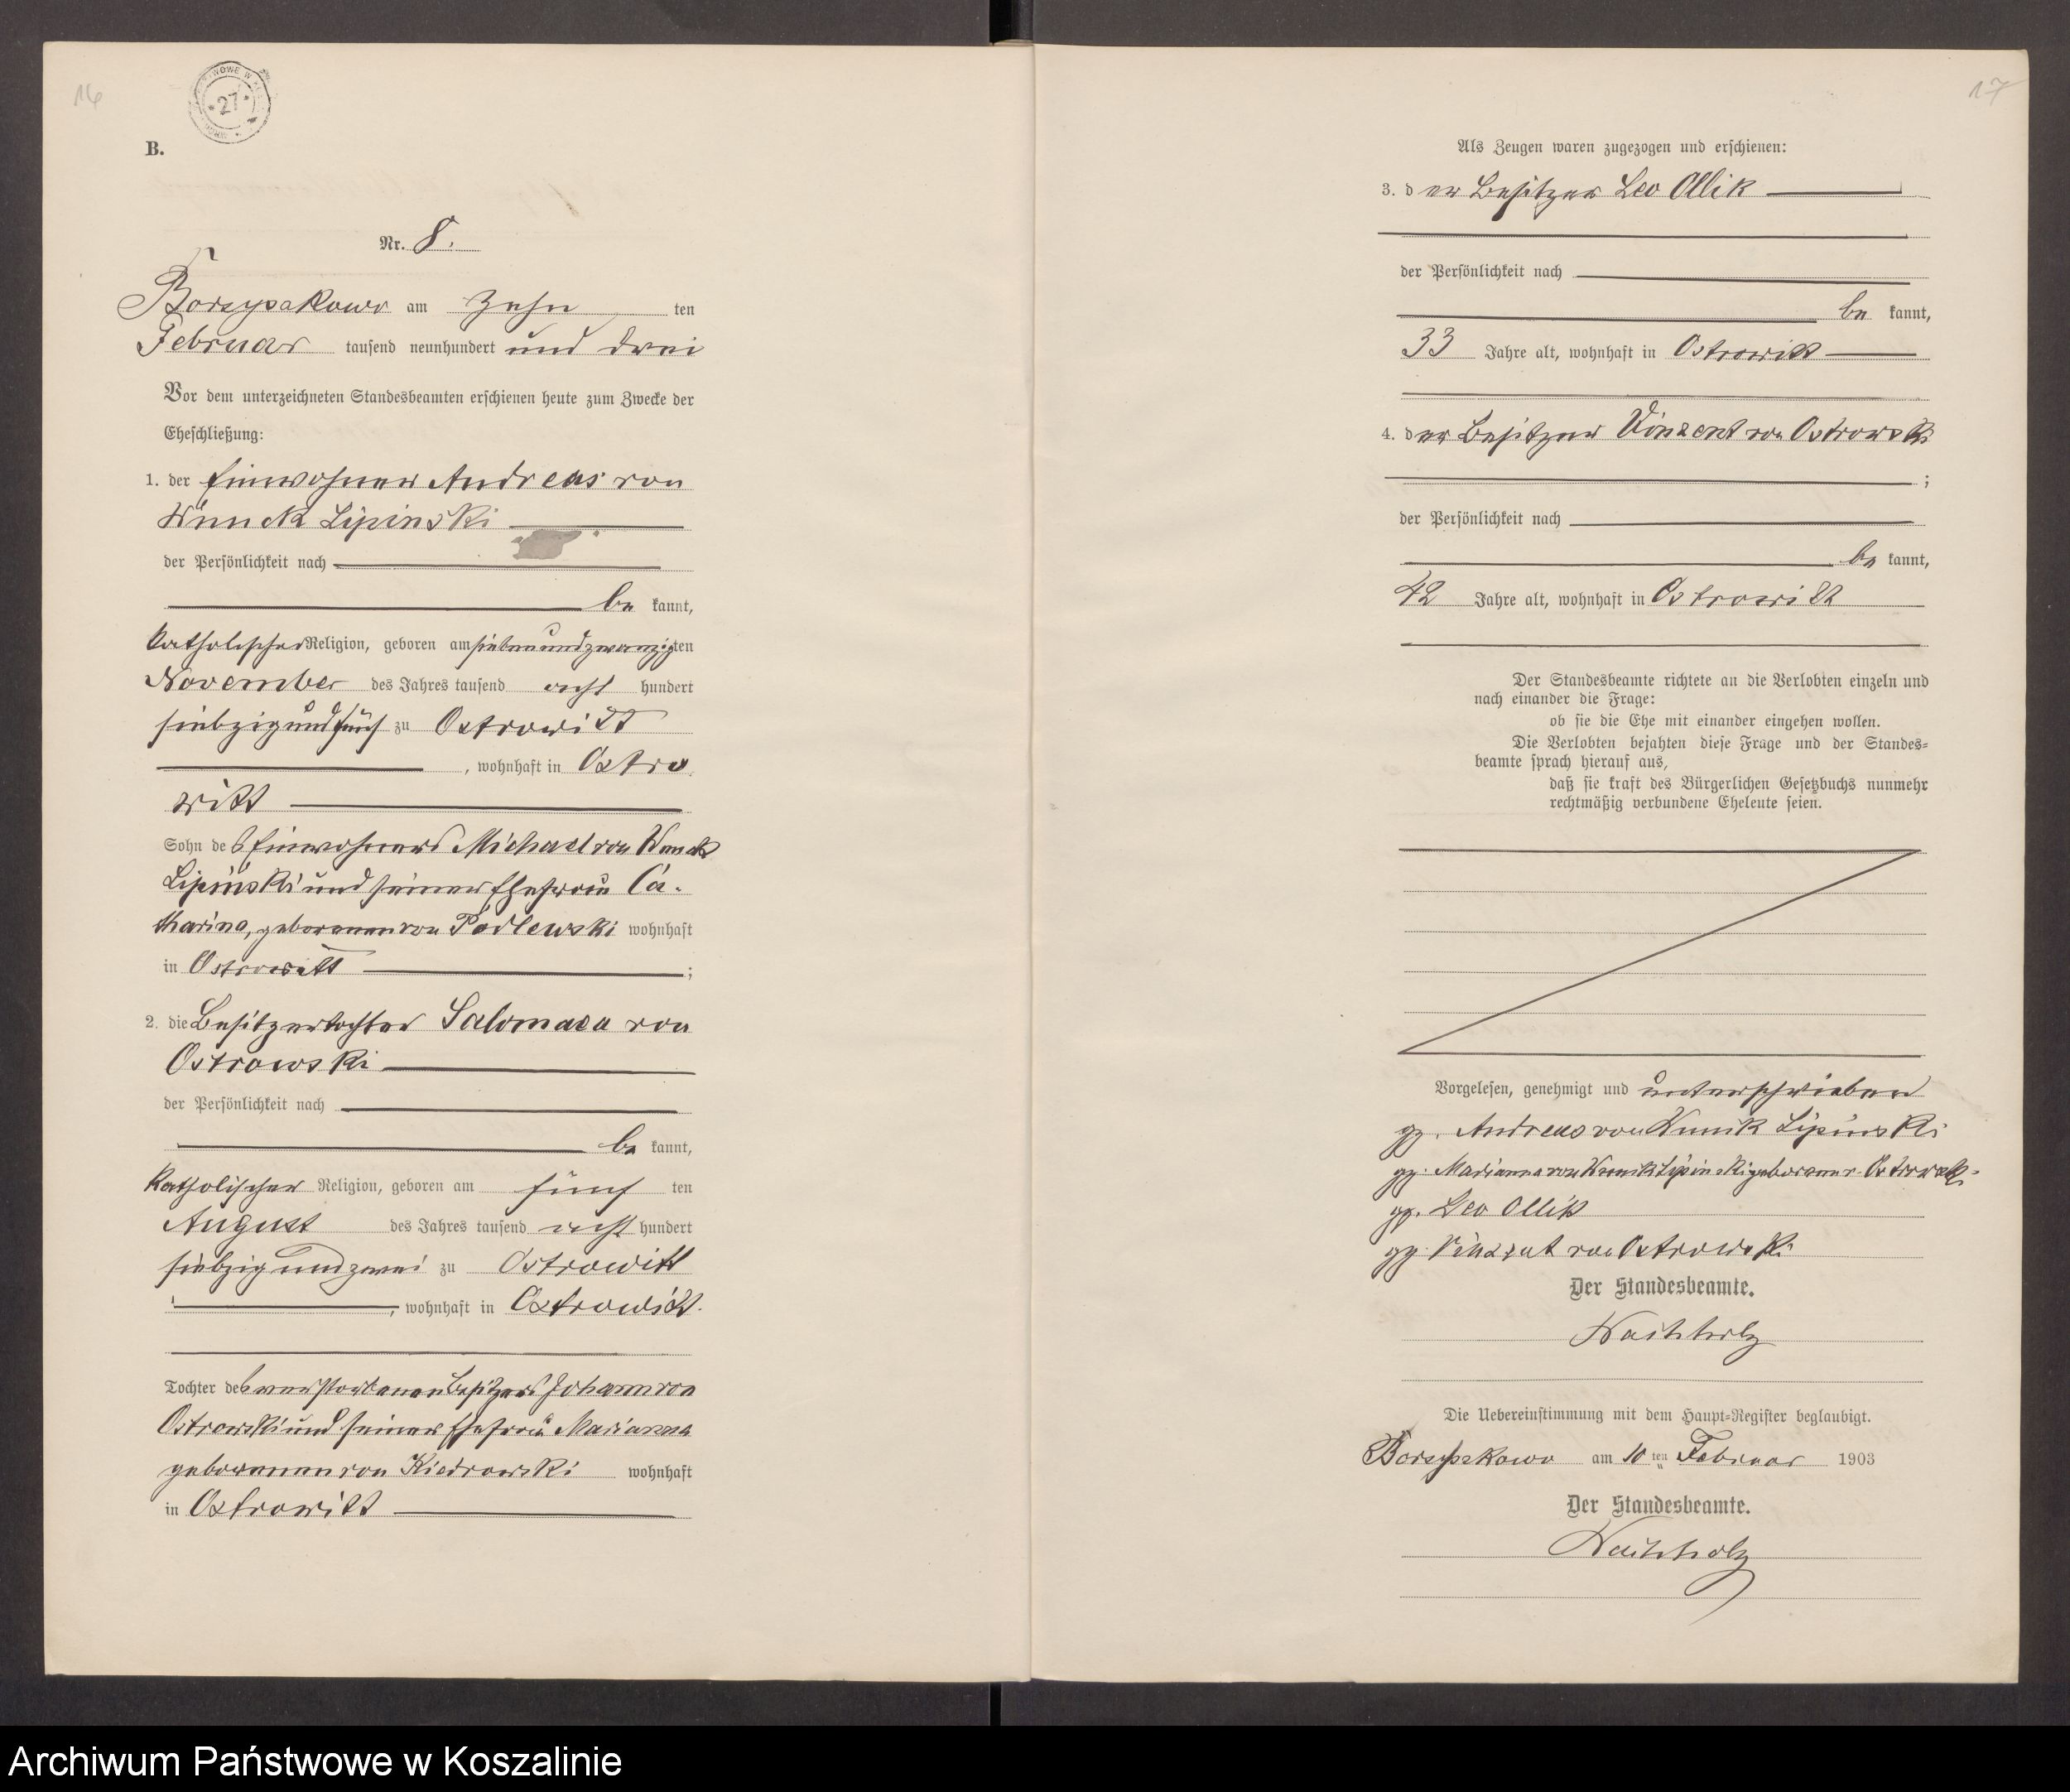 16
27
B.
Nr. 8.
Borzyszkowo am Zehn ten
Februar tausend neunhundert und drei
Vor dem unterzeichneten Standesbeamten erschienen heute zum Zwecke der
Eheschließung:
1. der Einwohner Andreas von
Wnuck Lipinski
der Persönlichkeit nach
be kannt,
katholischer Religion, geboren am siebenundzwanzigten
November des Jahres tausend acht hundert
siebzig und fünf zu Ostrowitt
, wohnhaft in Ostro
witt
Sohn des Einwohners Michael von Wnuck
Lipinski und seiner Ehefrau Ca-
tharina, geborenen von Podlewski wohnhaft
in Ostrowitt ;
2. die Besitzertochter Salomaea von
Ostrowski
der Persönlichkeit nach
be kannt,
katholischer Religion, geboren am fünf ten
August des Jahres tausend acht hundert
siebzig und zwei zu Ostrowitt
, wohnhaft in Ostrowitt.
Tochter des verstorbenen Besitzers Johann von
Ostrowski und seiner Ehefrau Marianna
geborenen von Kiedrowski wohnhaft
in Ostrowitt
17
Als Zeugen waren zugezogen und erschienen:
3. der Besitzer Leo Ollik
der Persönlichkeit nach
be kannt,
33 Jahre alt, wohnhaft in Ostrowitt
4. der Besitzer Vinzent von Ostrowski
;
der Persönlichkeit nach
be kannt,
42 Jahre alt, wohnhaft in Ostrowitt
Der Standesbeamte richtete an die Verlobten einzeln und
nach einander die Frage:
ob sie die Ehe mit einander eingehen wollen.
Die Verlobten bejahten diese Frage und der Standes=
beamte sprach hierauf aus,
daß sie kraft des Bürgerlichen Gesetzbuchs nunmehr
rechtmäßig verbundene Eheleute seien.
Vorgelesen, genehmigt und unterschrieben
gz. Andreas von Wnuck Lipinski
gz. Marianna von Wnuck Lipinski geborene v. Ostrowski
gz. Leo Ollik
gz. Vinzent von Ostrowski
Der Standesbeamte.
Die Uebereinstimmung mit dem Haupt=Register beglaubigt.
Borzyszkowo am 10 ten Februar 1903
Der Standesbeamte.
Archiwum Państwowe w Koszalinie